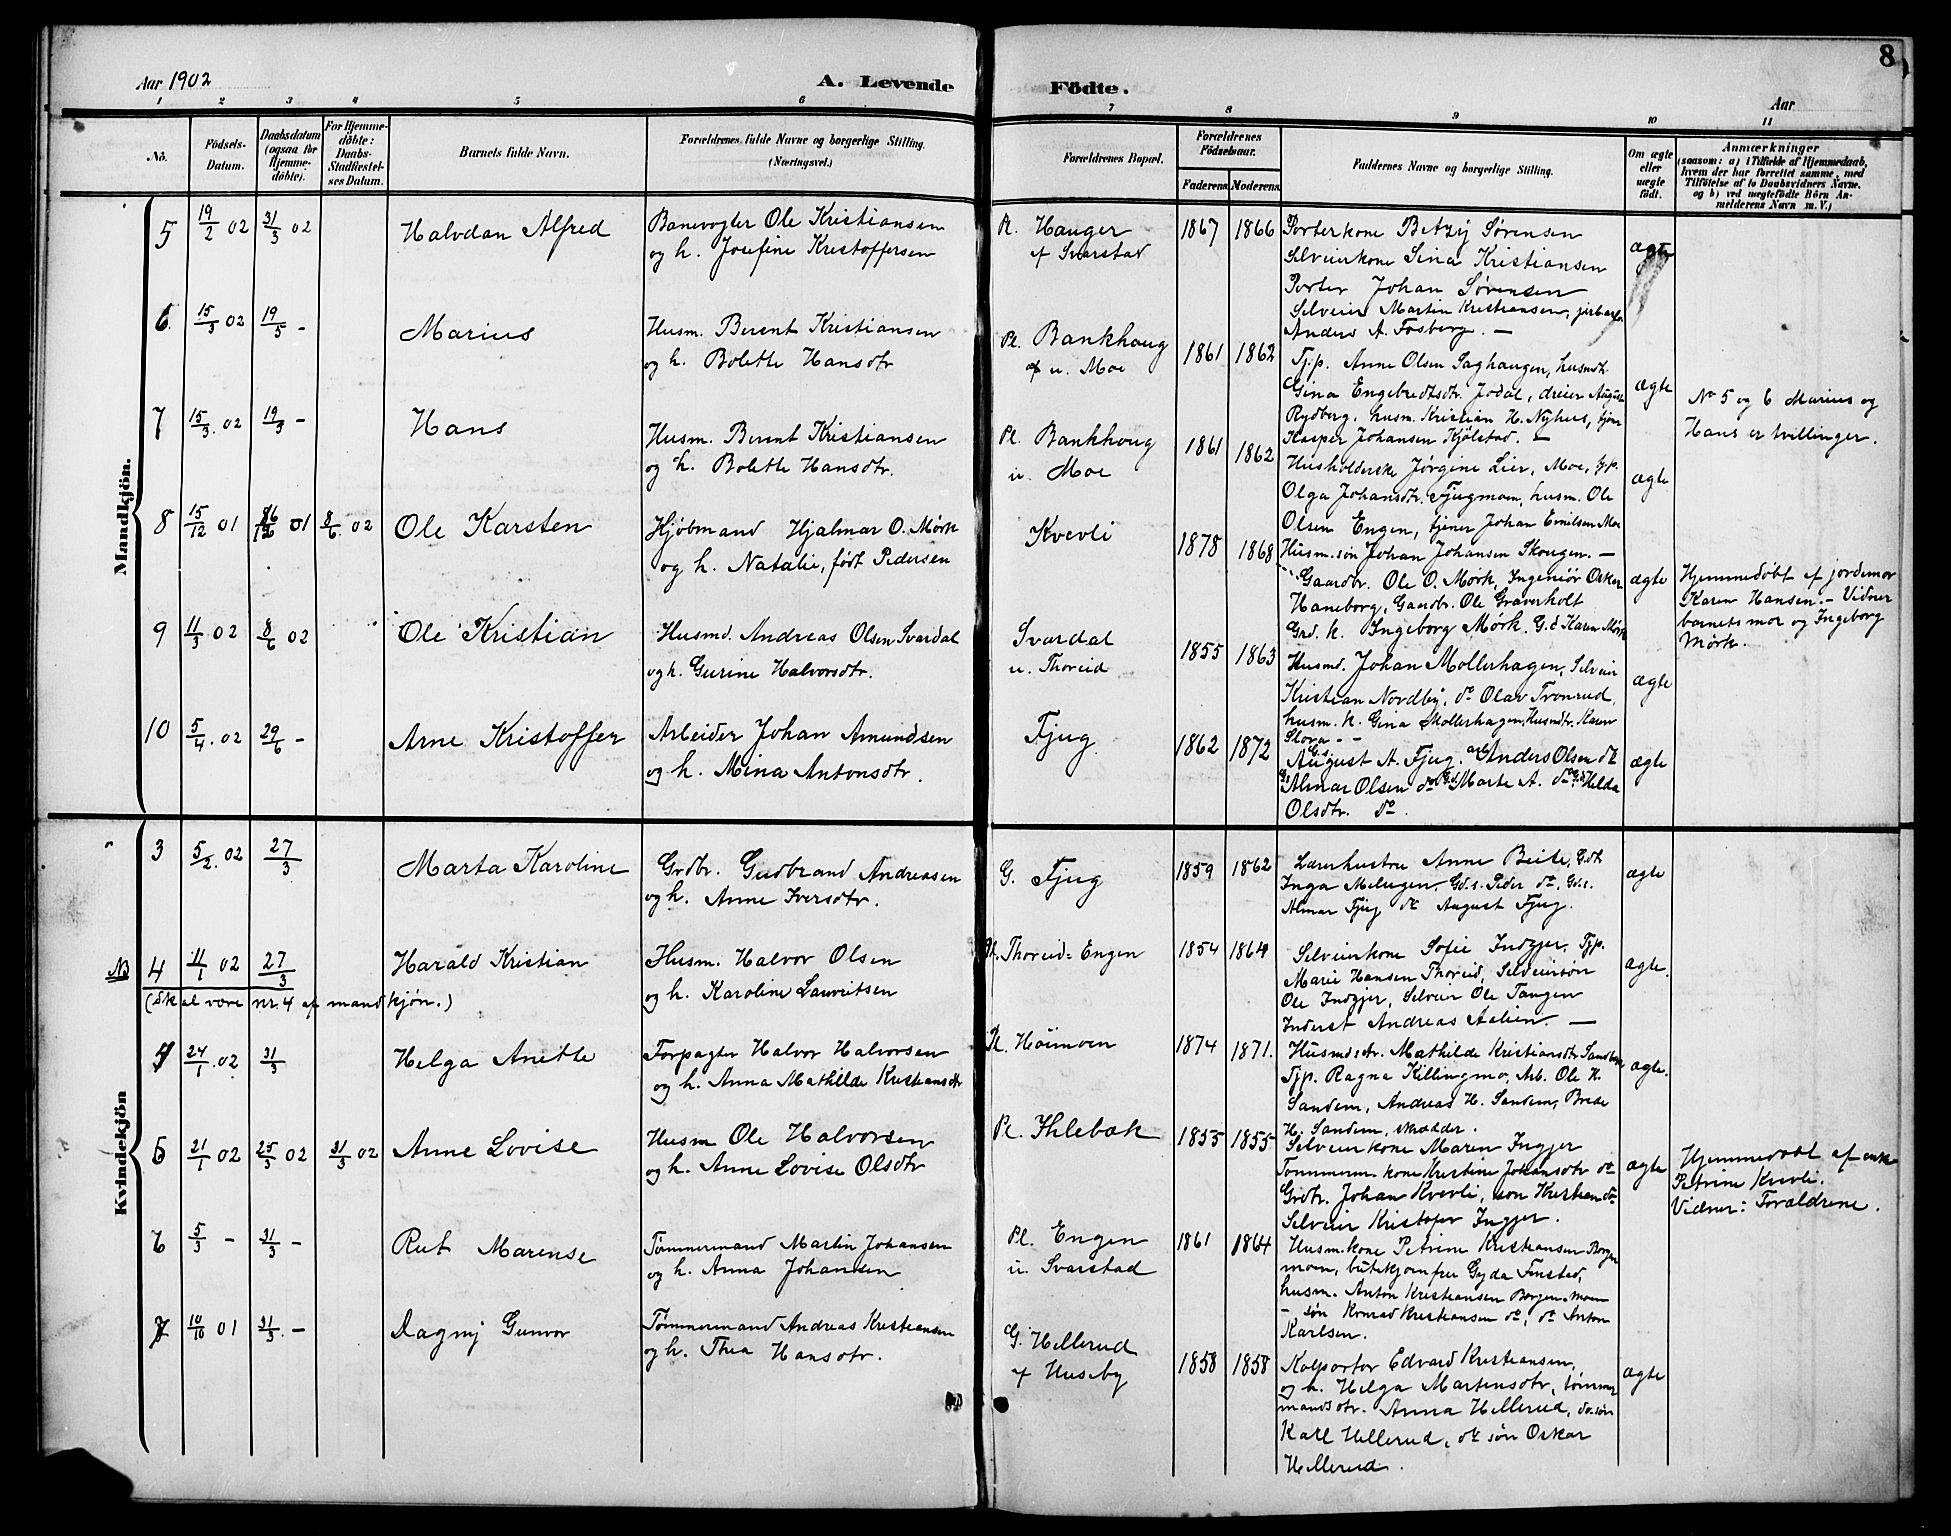 8
Aar 1902
A. Levende
Födte.
Aar
1 2 3 4 5 6 7 8 9 10 11
No.
Födsels-Datum.
Daabsdatum (ogsaa for Hjemme-döbte).
For Hjemme-döbte: Daabs-Stadfæstel-ses Datum.
Barnets fulde Navn.
Forældrenes fulde Navne og borgerlige Stilling. (Næringsvei.)
Forældrenes Bopæl.
Forældrenes Födselsaar.
Faderens
Moderens
Faddernes Navne og borgerlige Stilling.
Om ægte eller uægte født.
Anmærkninger
(saasom: a) i Tilfælde af Hjemmedaab, hvem der har forrettet samme, med Tilföielse af to Daabsvidners Navne. og b) ved uægtefödte Börn An-melderens Navn m. V.)
Mandkjön.
5 19/2 02 31/3 02 Halvdan Alfred
Banevogter Ole Kristiansen
og h. Josefine Kristoffersen
Pl. Hauger
af Svarstad
1867 1866
Porterkone Betzy Sørensen
Selveierkone Sina Kristiansen
Porter Johan Sørensen
Selveier Martin Kristiansen,
Anders A. Fosberg. —
ægte
6 15/3 02 19/5 - Marius
Husm. Berent Kristiansen
og h. Bolette Hansdtr
Pl. Bankhoug
u. Moe
1861 1862
Tj.p. Anne Olsen Saghaugen, husmdt.
Gina Engebredtsdtr. Jødal, dreier August
Rydberg, husm. Kristian H. Nyhus, tjener
Kasper Johansen Kjølstad. —
ægte
No 5 og 6 Marius og
Hans er tvillinger.
7 15/3. 02 19/3 - Hans
Husm. Berent Kristiansen
og h. Bolette Hansdtr.
Pl. Bankhoug
u. Moe
1861 1862
Husholderske Jørgine Lier, Moe, tj.p.
Olga Johansdtr. Fjugmoen, husm. Ole
Olsen Engen, tjener Johan Emilsen Moe
Husm. søn Johan Johansen Skougen. —
ægte
8 15/12 01 01 8/6. 02 Ole Karsten
Kjøbmand Hjalmar O. Mørk
og h. Natalie, født Pedersen
Kvevli
1878 1868
Gaardbr. Ole O. Mørk, Ingeniør Oskar
Haneborg, Gaardbr. Ole Graverholt
Grd. k. Ingeborg Mørk. G.d Karen Mørk
ægte
Hjemmedøbt af jordemor
Karen Hansen. - Vidner
barnets mor og Ingeborg
Mørk.
9 11/3 02 8/6 02 Ole Kristian
Husmd. Andreas Olsen Svardal
og h. Gurine Halvorsdtr.
Svardal
u. Thoreid
1855 1863
Husmd. Johan Mollerhagen, Selveier
Kristian Nordby, do Olav Tronrud,
husm. k. Gina Mollerhagen, Husmdtr. Karen
Slora - -
ægte
10 5/4. 02 29/6 - Arne Kristoffer
Arbeider Johan Amundsen
og h. Mina Antonsdtr.
Fjug
1862 1872
G.s. August A. Fjug. arb. Anders Olsen do
G.s. Almar Olsen do G.d. Marte A. do, G.d Helda
Olsdtr. do.
ægte
Kvindekjön
3 5/2. 02 27/3 Marta Karoline
Grdbr. Gudbrand Andreasen
og h. Anne Iversdtr.
G. Fjug
1859 1862
Lærerhustru Anne Beite, G.dt.
Inga Melugen, Gd.s. Peder do, Gd.s.
Almar Fjug do August Fjug.
ægte
NB 4 11/1 02 27/3 Harald Kristian
(Skal være nr. 4 af mandkjön.)
Husm. Halvor Olsen
og h. Karoline Lauritsen
Pl. Thoreid-Engen
1854 1864
Selveierkone Sofie Indgjer, Tjp.
Marie Hansen Thoreid, Selveiersøn
Ole Indgjer, Selveier Ole Tangen
Inderst Andreas Aalien. —
ægte.
4 24/1. 02 31/3 Helga Anette
Forpagter Halvor Halvorsen
og h. Anna Mathilde Kristiansdtr
Pl. Høimoen
1874 1871.
Husmdsdtr. Mathilde Kristiansdtr Sandem,
Tjp. Ragna Killingmo, Arb. Ole H.
Sandem, Andreas H. Sandem, Brede
H. Sandem, skrædder.
ægte.
5 21/1 02 25/3 02 31/3 02 Anne Lovise
Husm Ole Halvorsen
og h. Anne Lovise Olsdtr
Pl. Ihlebæk
1855 1855
Selveierkone Maren Ingjer
Tømmerm kone Kristine Johansdtr do
Grdbr. Johan Kvevli, søn Kristian do
Selveier Kristofer Ingjer.
ægte
Hjemmedøbt af enke
Petrine Kvevli.
Vidner: Forældrene.
6 5/3 - 31/3 - Rut Marense
Tømmermand Martin Johansen
og h. Anna Johansen
Pl. Engen
u. Svarstad
1861 1864
Husm.kone Petrine Kristiansen Borgen
moen, butikjomfru Gyda Finstad,
husm. Anton Kristiansen Borgen-moen
- søn Konrad Kristiansen do, do Anton
Karlsen.
7 10/10 01 31/3. - Dagny Gunvor
Tømmermand Andreas Kristiansen
og h. Thea Hansdtr.
G. Hellerud
af Huseby
1858 1858
Kolportør Edvard Kristiansen,
og h. Helga Martinsdtr, tømmer
mandsdtr. Anna Hellerud, do. søn
Karl Hellerud, do søn Oskar
Hellerud.
ægte